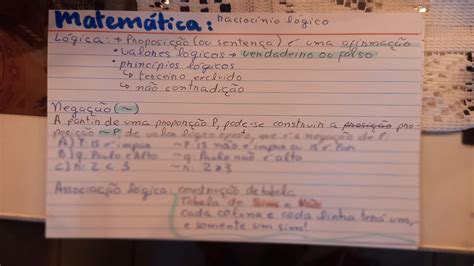 Matemática: raciocínio lógico
Lógica: → Proposição (ou sentença) é uma afirmação
• valores lógicos → verdadeiro ou falso
• princípios lógicos
↳ terceiro excluído
↳ não contradição
Negação (~)
A partir de uma proporção P, pode-se construir a pro-
posição ~P de valor lógico oposto, que é a negação de P.
A) P: 15 é ímpar ~P: 15 não é ímpar ou 15 é Par
B) q: Paulo é alto ~q: Paulo não é alto
C) r: 2 < 3 ~r: 2 ≮ 3
Associação lógica: construção de tabela
Tabela de Sim e Não
cada coluna e cada linha terá um,
e somente um sim!